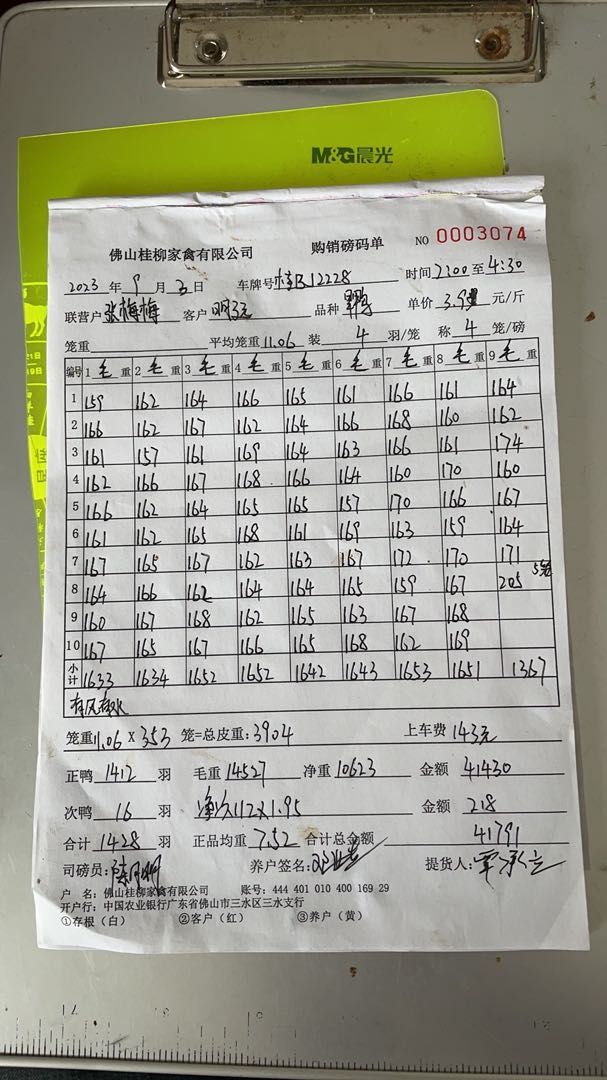 M&G晨光
佛山桂柳家禽有限公司 购销磅码单 NO 0003074
2023 年 9 月 3 日 车牌号 桂B12228 时间 2:00 至 4:30
联营户 张梅梅 客户 品种 单价 元/斤
笼重 平均笼重 11.06 装 4 羽/笼 称 4 笼/磅
编号 1 毛 重 2 毛 重 3 毛 重 4 毛 重 5 毛 重 6 毛 重 7 毛 重 8 毛 重 9 毛 重
1 159 162 164 166 165 161 166 161 164
2 166 162 167 162 164 166 168 160 162
3 161 157 161 169 164 163 166 161 174
4 162 166 167 168 166 164 160 170 160
5 166 162 164 165 165 157 170 166 167
6 161 162 165 168 161 169 163 159 164
7 167 165 167 162 163 167 172 170 171
8 164 166 162 164 164 165 159 167 205 5笼
9 160 167 168 162 165 163 167 168
10 167 165 167 166 165 168 162 169
小计 1633 1634 1652 1652 1642 1643 1653 1651 1367
有风有水
笼重 11.06 X 353 笼=总皮重: 3904 上车费 143元
正鸭 1412 羽 毛重 14527 净重 10623 金额 41430
次鸭 16 羽 112X1.95 金额 218
合计 1428 羽 正品均重 7.52 合计总金额 41791
司磅员: 养户签名: 提货人:
户 名: 佛山桂柳家禽有限公司 账号: 444 401 010 400 169 29
开户行: 中国农业银行广东省佛山市三水区三水支行
①存根（白） ②客户（红） ③养户（黄）